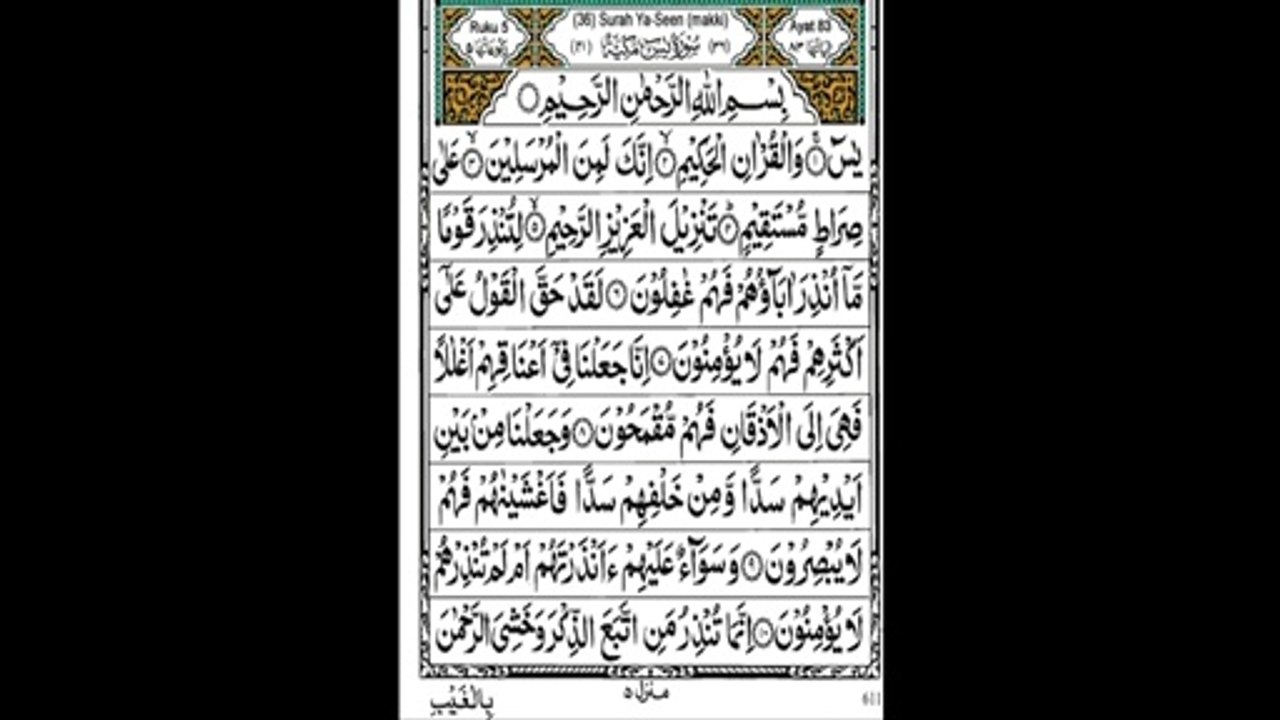 Ruku 5 (36) Surah Ya-Seen (makki) Ayat 83
رکوعاتها ۵ (۳۶) سُوْرَةُ یٰسٓ مَكِّيَّةٌ (۴۱) اٰیاتها ۸۳
بِسْمِ اللهِ الرَّحْمٰنِ الرَّحِيْمِ
يٰسٓ ۚ﴿۱﴾ وَالْقُرْاٰنِ الْحَكِيْمِ ۙ﴿۲﴾ اِنَّكَ لَمِنَ الْمُرْسَلِيْنَ ۙ﴿۳﴾ عَلٰى
صِرَاطٍ مُّسْتَقِيْمٍ ؕ﴿۴﴾ تَنْزِيْلَ الْعَزِيْزِ الرَّحِيْمِ ۙ﴿۵﴾ لِتُنْذِرَ قَوْمًا
مَّاۤ اُنْذِرَ اٰبَآؤُهُمْ فَهُمْ غٰفِلُوْنَ ﴿۶﴾ لَقَدْ حَقَّ الْقَوْلُ عَلٰٓى
اَكْثَرِهِمْ فَهُمْ لَا يُؤْمِنُوْنَ ﴿۷﴾ اِنَّا جَعَلْنَا فِيْۤ اَعْنَاقِهِمْ اَغْلٰلًا
فَهِىَ اِلَى الْاَذْقَانِ فَهُمْ مُّقْمَحُوْنَ ﴿۸﴾ وَجَعَلْنَا مِنْۢ بَيْنِ
اَيْدِيْهِمْ سَدًّا وَّمِنْ خَلْفِهِمْ سَدًّا فَاَغْشَيْنٰهُمْ فَهُمْ
لَا يُبْصِرُوْنَ ﴿۹﴾ وَسَوَآءٌ عَلَيْهِمْ ءَاَنْذَرْتَهُمْ اَمْ لَمْ تُنْذِرْهُمْ
لَا يُؤْمِنُوْنَ ﴿۱۰﴾ اِنَّمَا تُنْذِرُ مَنِ اتَّبَعَ الذِّكْرَ وَخَشِىَ الرَّحْمٰنَ
بِالْغَيْبِ
منزل ۵
611